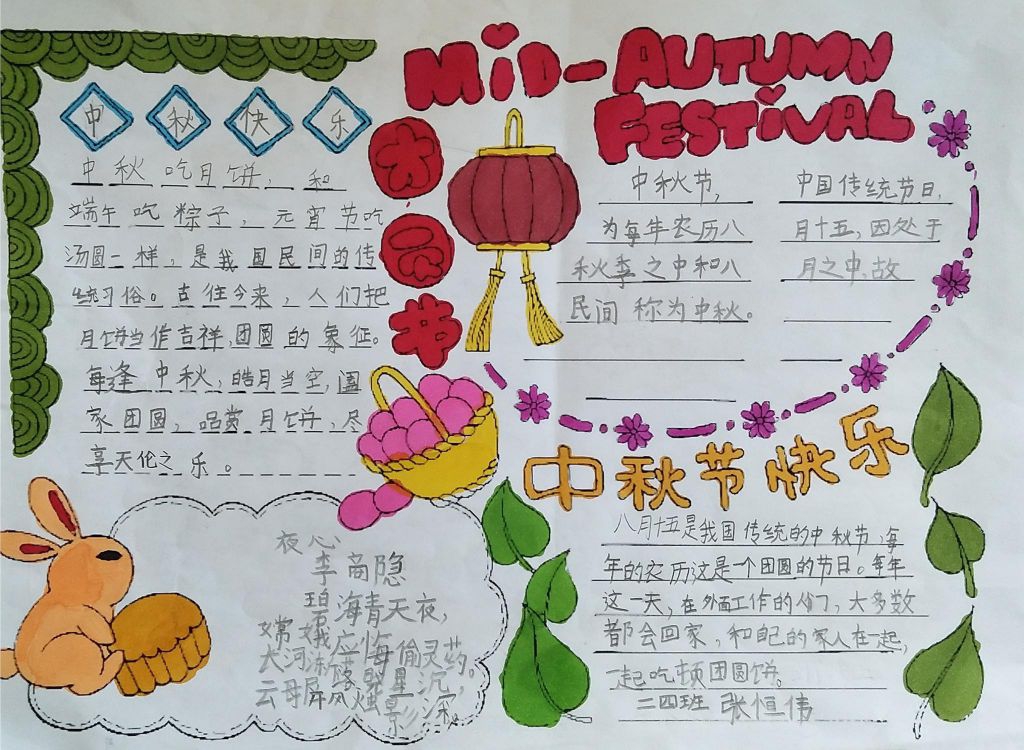 MiD-AUTUMN
FESTiVAL
中秋快乐
中秋吃月饼，和
端午吃粽子，元宵节吃
汤圆一样，是我国民间的传
统习俗。古往今来，人们把
月饼当作吉祥，团圆的象征。
每逢中秋，皓月当空，阖
家团圆，品赏月饼，尽
享天伦之乐。
中秋节，中国传统节日，
为每年农历八月十五，因处于
秋季之中和八月之中，故
民间称为中秋。
中秋节快乐
八月十五是我国传统的中秋节，每
年的农历这是一个团圆的节日。每年
这一天，在外面工作的人们，大多数
都会回家，和自己的家人在一起，
一起吃顿团圆饼。
二四班 张恒伟
夜心
李商隐
碧海青天夜，
嫦娥应悔偷灵药。
大河渐落晓星沉，
云母屏风烛影深。